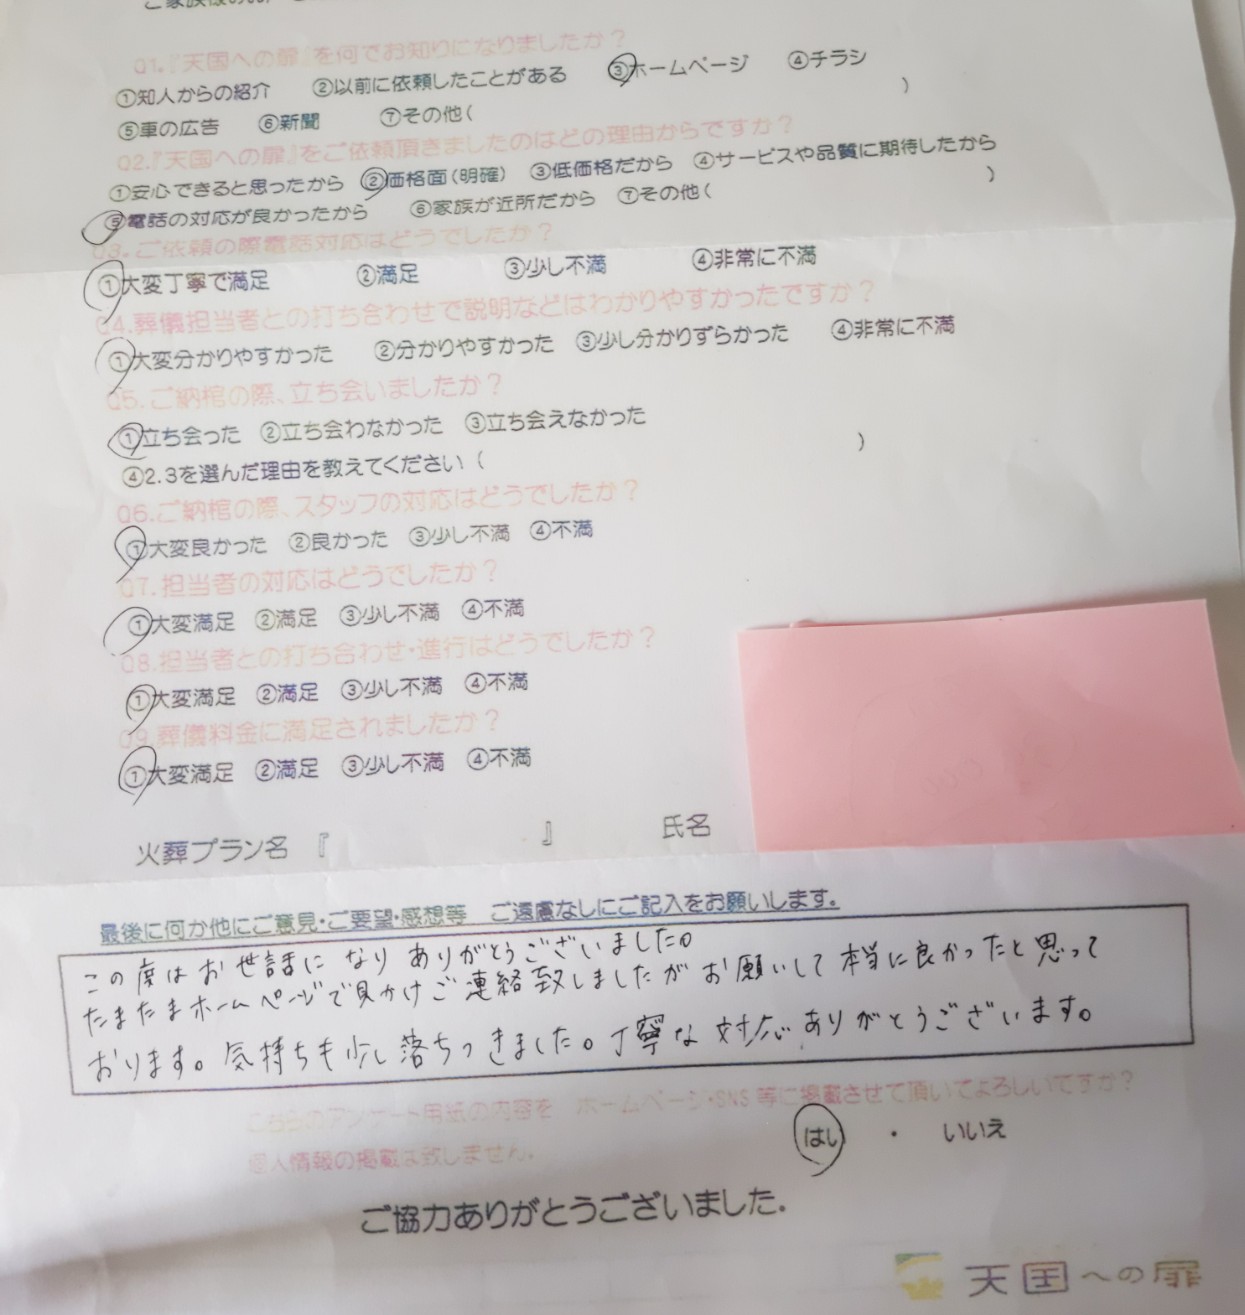 Q1.『天国への扉』を何でお知りになりましたか？
①知人からの紹介 ②以前に依頼したことがある ③ホームページ ④チラシ
⑤車の広告 ⑥新聞 ⑦その他( )
Q2.『天国への扉』をご依頼頂きましたのはどの理由からですか？
①安心できると思ったから ②価格面(明確) ③低価格だから ④サービスや品質に期待したから
⑤電話の対応が良かったから ⑥家族が近所だから ⑦その他( )
Q3.ご依頼の際電話対応はどうでしたか？
①大変丁寧で満足 ②満足 ③少し不満 ④非常に不満
Q4.葬儀担当者との打ち合わせで説明などはわかりやすかったですか？
①大変分かりやすかった ②分かりやすかった ③少し分かりずらかった ④非常に不満
Q5.ご納棺の際、立ち会いましたか？
①立ち会った ②立ち会わなかった ③立ち会えなかった
④2.3を選んだ理由を教えてください( )
Q6.ご納棺の際、スタッフの対応はどうでしたか？
①大変良かった ②良かった ③少し不満 ④不満
Q7.担当者の対応はどうでしたか？
①大変満足 ②満足 ③少し不満 ④不満
Q8.担当者との打ち合わせ・進行はどうでしたか？
①大変満足 ②満足 ③少し不満 ④不満
Q9.葬儀料金に満足されましたか？
①大変満足 ②満足 ③少し不満 ④不満
火葬プラン名『 』 氏名
最後に何か他にご意見・ご要望・感想等 ご遠慮なしにご記入をお願いします。
この度はお世話になりありがとうございました。
たまたまホームページで見かけご連絡致しましたがお願いして本当に良かったと思って
おります。気持ちも少し落ちつきました。丁寧な対応ありがとうございます。
こちらのアンケート用紙の内容を ホームページ・SNS等に掲載させて頂いてよろしいですか？
個人情報の掲載は致しません。
はい ・ いいえ
ご協力ありがとうございました．
天国への扉